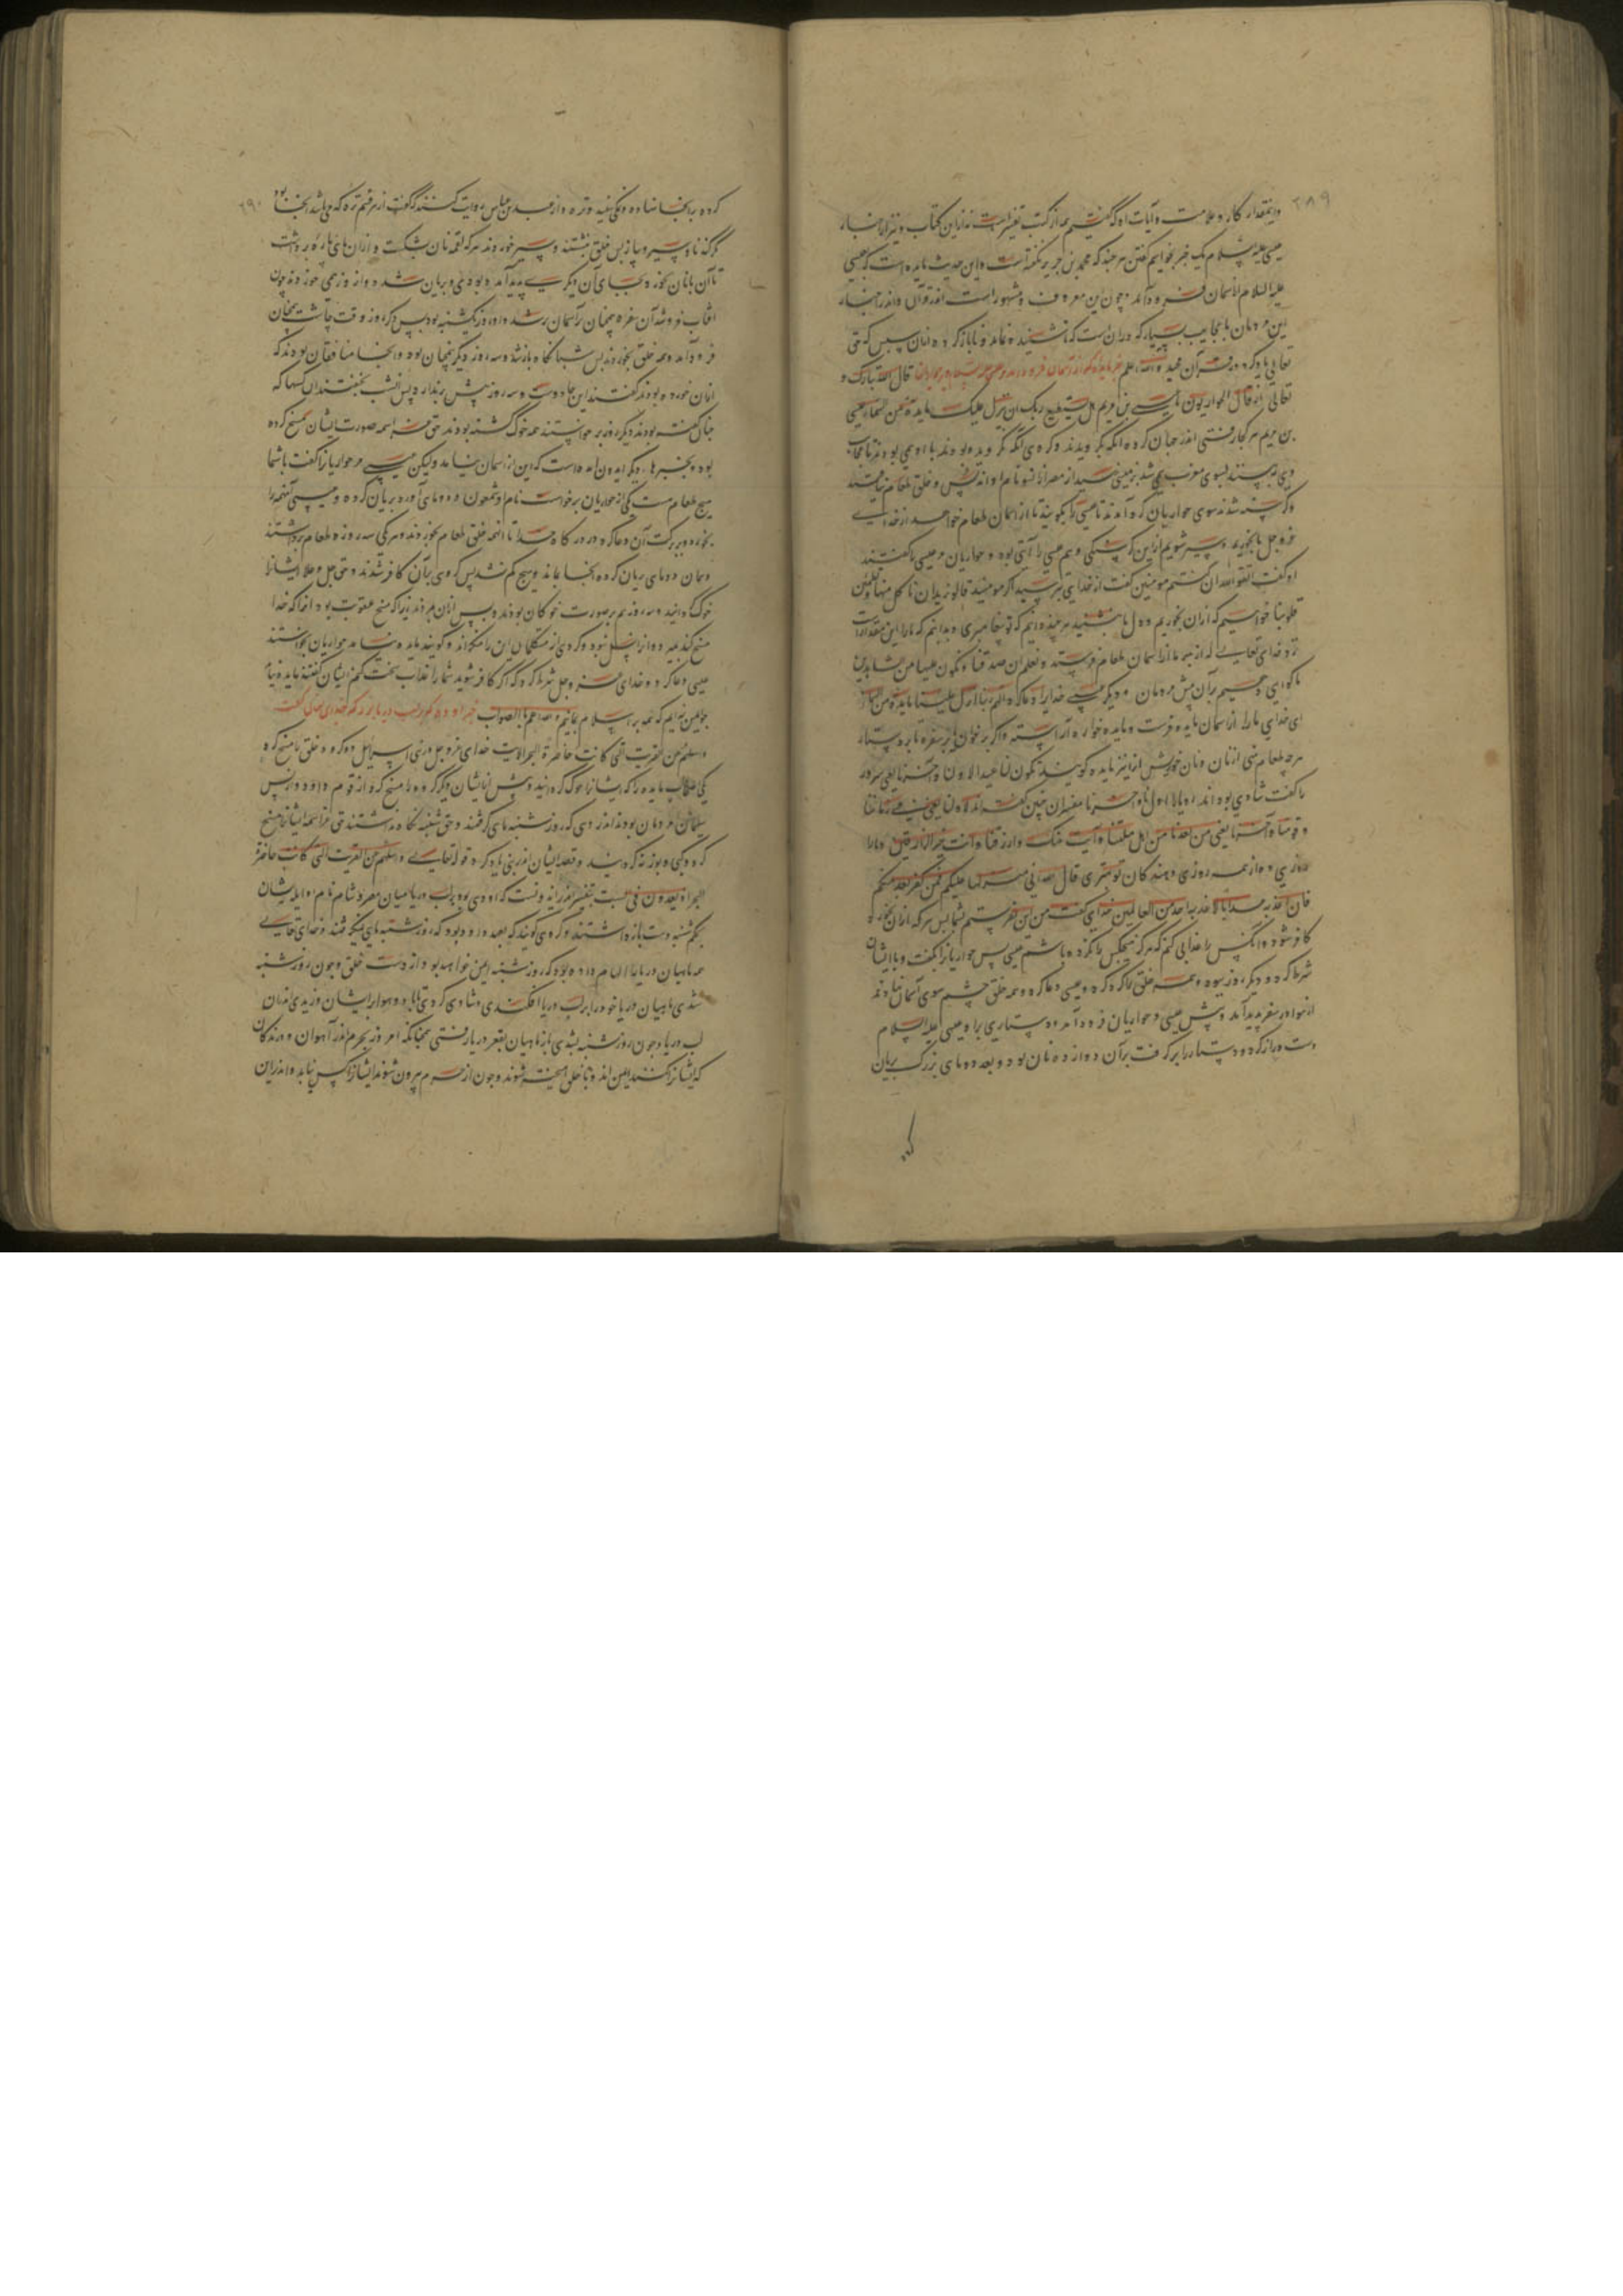 ۲۸۹
واینمقدار کار و علامت و آیات او که گفتیم همه از کتب تفسیر است نه ازین کتاب و نیز از اخبار
عیسی علیه السلام یک خبر بخواهیم گفتن هر چند که محمد بن جریر نگفته است و این حدیث مایده است که عیسی
علیه السلام از آسمان فرود آمد و چون این معروف و مشهور است اندر قرآن و اندر اخبار
این مردمان با عجایب بسیار که در آن است که
تعالی یاد کرد در قرآن مجید والله اعلم خبر مایده که از آسمان فرود آمد بر عیسی علیه السلام و حواریان قال الله تبارک و
تعالی اذ قال الحواریون یا عیسی بن مریم هل یستطیع ربک ان ینزل علینا مایدة من السماء عیسی
بن مریم هر کجا رفتی اندر جهان گروه آنکه بگرویدند و گروهی آنکه نگرویده بودند با او همی بودند تا عجایب
وی ببینند بسوی مغرب همی شد بزمینی رسید از مصر و خلق طعام نیافتند
و گرسنه شدند سوی حواریان گرد آمدند تا عیسی را بگویند تا از آسمان طعام خواهد از خدای
عز و جل تا بخوریم و سیر شویم ازین گرسنگی و هم عیسی را آیتی بود و حواریان عیسی را گفتند
او گفت اتقوا الله ان کنتم مومنین گفت از خدای بترسید اگر مومنید قالوا نرید ان ناکل منها و تطمئن
قلوبنا خواهیم که از آن بخوریم و دل ما بنشیند هر چند دانیم که تو پیغامبری و بدانیم که ترا این مقدار است
نزد خدای تعالی که از بهر ما از آسمان طعام فرستد و نعلم ان صدقتنا و نکون علیها من الشاهدین
تا گواهی دهیم بر آن پیش مردمان دیگر عیسی خدایرا دعا کرد اللهم ربنا انزل علینا مایدة من السماء
ای خدای ما را از آسمان مایده فرست و مایده خوان آراسته و اگر بر خوان یا بر سفره یا بر دستار
هر چه طعام نهی از نان و نان خورش آنرا نیز مایده گویند تکون لنا عیدا لاولنا و آخرنا یعنی سرور
را گفت شادی بود اولنا و آخرنا مفسران چنین گفته اند لاولنا یعنی فی زماننا
و قومنا و آخرنا یعنی من بعدنا من اهل ملتنا و آیة منک وارزقنا و انت خیر الرازقین و ما را
روزی ده از همه روزی دهندگان تو بهتری قال الله انی منزلها علیکم فمن یکفر بعد منکم
فانی اعذبه عذابا لا اعذبه احدا من العالمین خدای گفت من این بفرستم بشما پس هر که از آن بخورد و
کافر شود و آنگه پس را عذابی کنم که هرگز هیچکس را نکرده باشم عیسی پس حواریانرا بگفت و با ایشان
شرط کرد و دیگر روز ببود و همه خلق را گرد کرد و عیسی دعا کرد و همه خلق چشم سوی آسمان نهادند
از هوا در سفره پدید آمد و پیش عیسی و حواریان فرود آمد و دستاری بر او عیسی علیه السلام
دست دراز کرد و دستار را بر گرفت بر آن دوازده نان بود و بعد دو ماهی بزرگ بریان
۲۹۰
کرده بر آنجا نهاده و نمکی سپید و تره و از عبد الله بن عباس روایت کنند که گفت از هر قسم تره که می باشد آنجا بود
مگر گندنا و سیر و پیاز پس خلق بنشستند و سیر خوردند هر که لقمه نان بشکست و از آن ماهی پاره برداشت
تا آن با نان بخورد بجای آن دیگری پدید آمده بودی و بریان شده و از روز همی خوردند چون
آفتاب فرو شد آن سفره همچنان بآسمان رسید و او روز یکشنبه بود پس دیگر روز وقت چاشت همچنان
فرود آمد و همه خلق بخوردند پس شبانگاه باز شد و سه روز دیگر همچنان بود و آنجا منافقان بودند که
از آن خورده بودند گفتند این جادویست و سه روز بیش ندارد پس آنشب بخفتند آن کسها که
چنان گفته بودند دیگر روز برخواستند همه خوک گشته بودند حق عز اسمه صورت ایشان مسخ کرده
بود و بخبرها دیگر ایدون آمده است که این از آسمان نیامد ولیکن عیسی مر حواریانرا گفت با شما
هیچ طعام هست یکی از حواریان برخواست نام او شمعون و دو ماهی آورد بریان کرده و عیسی آنهمه را
بخورد و ببرکت آن دعا کرد در درگاه خدا تا آنهمه خلق طعام بخوردند و هر یکی سه روزه طعام برداشتند
و همان دو ماهی بریان کرده آنجا بماند و هیچ کم نشد پس گروهی بر آن کافر شدند و حق جل و علا ایشانرا
خوک گردانید و سه روز هم بر صورت خوکان بودند و پس از آن مردند زیرا که مسخ عقوبت بود آنرا که خدا
مسخ کند بمیرد و از او نسل نبود و گروهی از متکلمان این را منکراند و گویند مایده نیامد حواریان بخواستند
عیسی دعا کرد و خدای عز و جل شرط کرد که اگر کافر شوید شما را عذاب سخت کنم ایشان گفتند مایده نباید
والله اعلم بالصواب
و اسئلهم عن القریة التی کانت حاضرة البحر الایة خدای عز و جل در بنی اسرائیل دو گروه خلق را مسخ کرد
یکی اصحاب مایده را که ایشانرا خوک گردانید و پیش از ایشان دیگر گروه را مسخ کرد از قوم داود و از پس
سلیمان مردمان بودند اندر دهی که روز شنبه ماهی گرفتند و حق شنبه نگاه نداشتند حق عز اسمه ایشانرا مسخ
کرد و کپی و بوزنه گردانید و قصه ایشان اندر نبی یاد کرد قوله تعالی و اسئلهم عن القریة التی کانت حاضرة
البحر اذ یعدون فی السبت بتفسیر اندر ایدونست که او دهی بود بر لب دریا میان مصر و شام نام او ایله ایشان
بحکم شنبه دست باز داشتند و گروهی گویند که بعهد داود بود که روز شنبه ماهی نگرفتند و خدای تعالی
همه ماهیان دریا را الهام داده بود که روز شنبه ایمن خواهید بود از دست خلق و چون روز شنبه
شدی ماهیان دریا خود را بر لب دریا افکندی و شادی کردی
لب دریا و چون روز شنبه بشدی باز ماهیان بقعر دریا رفتی همچنانکه امروز بحرم اندر آهوان و درندگان
که ایشانرا نکشند ایمن اند و با خلق آمیخته شوند و چون از حرم بیرون شوند ایشانرا کس نیابد و اندر این